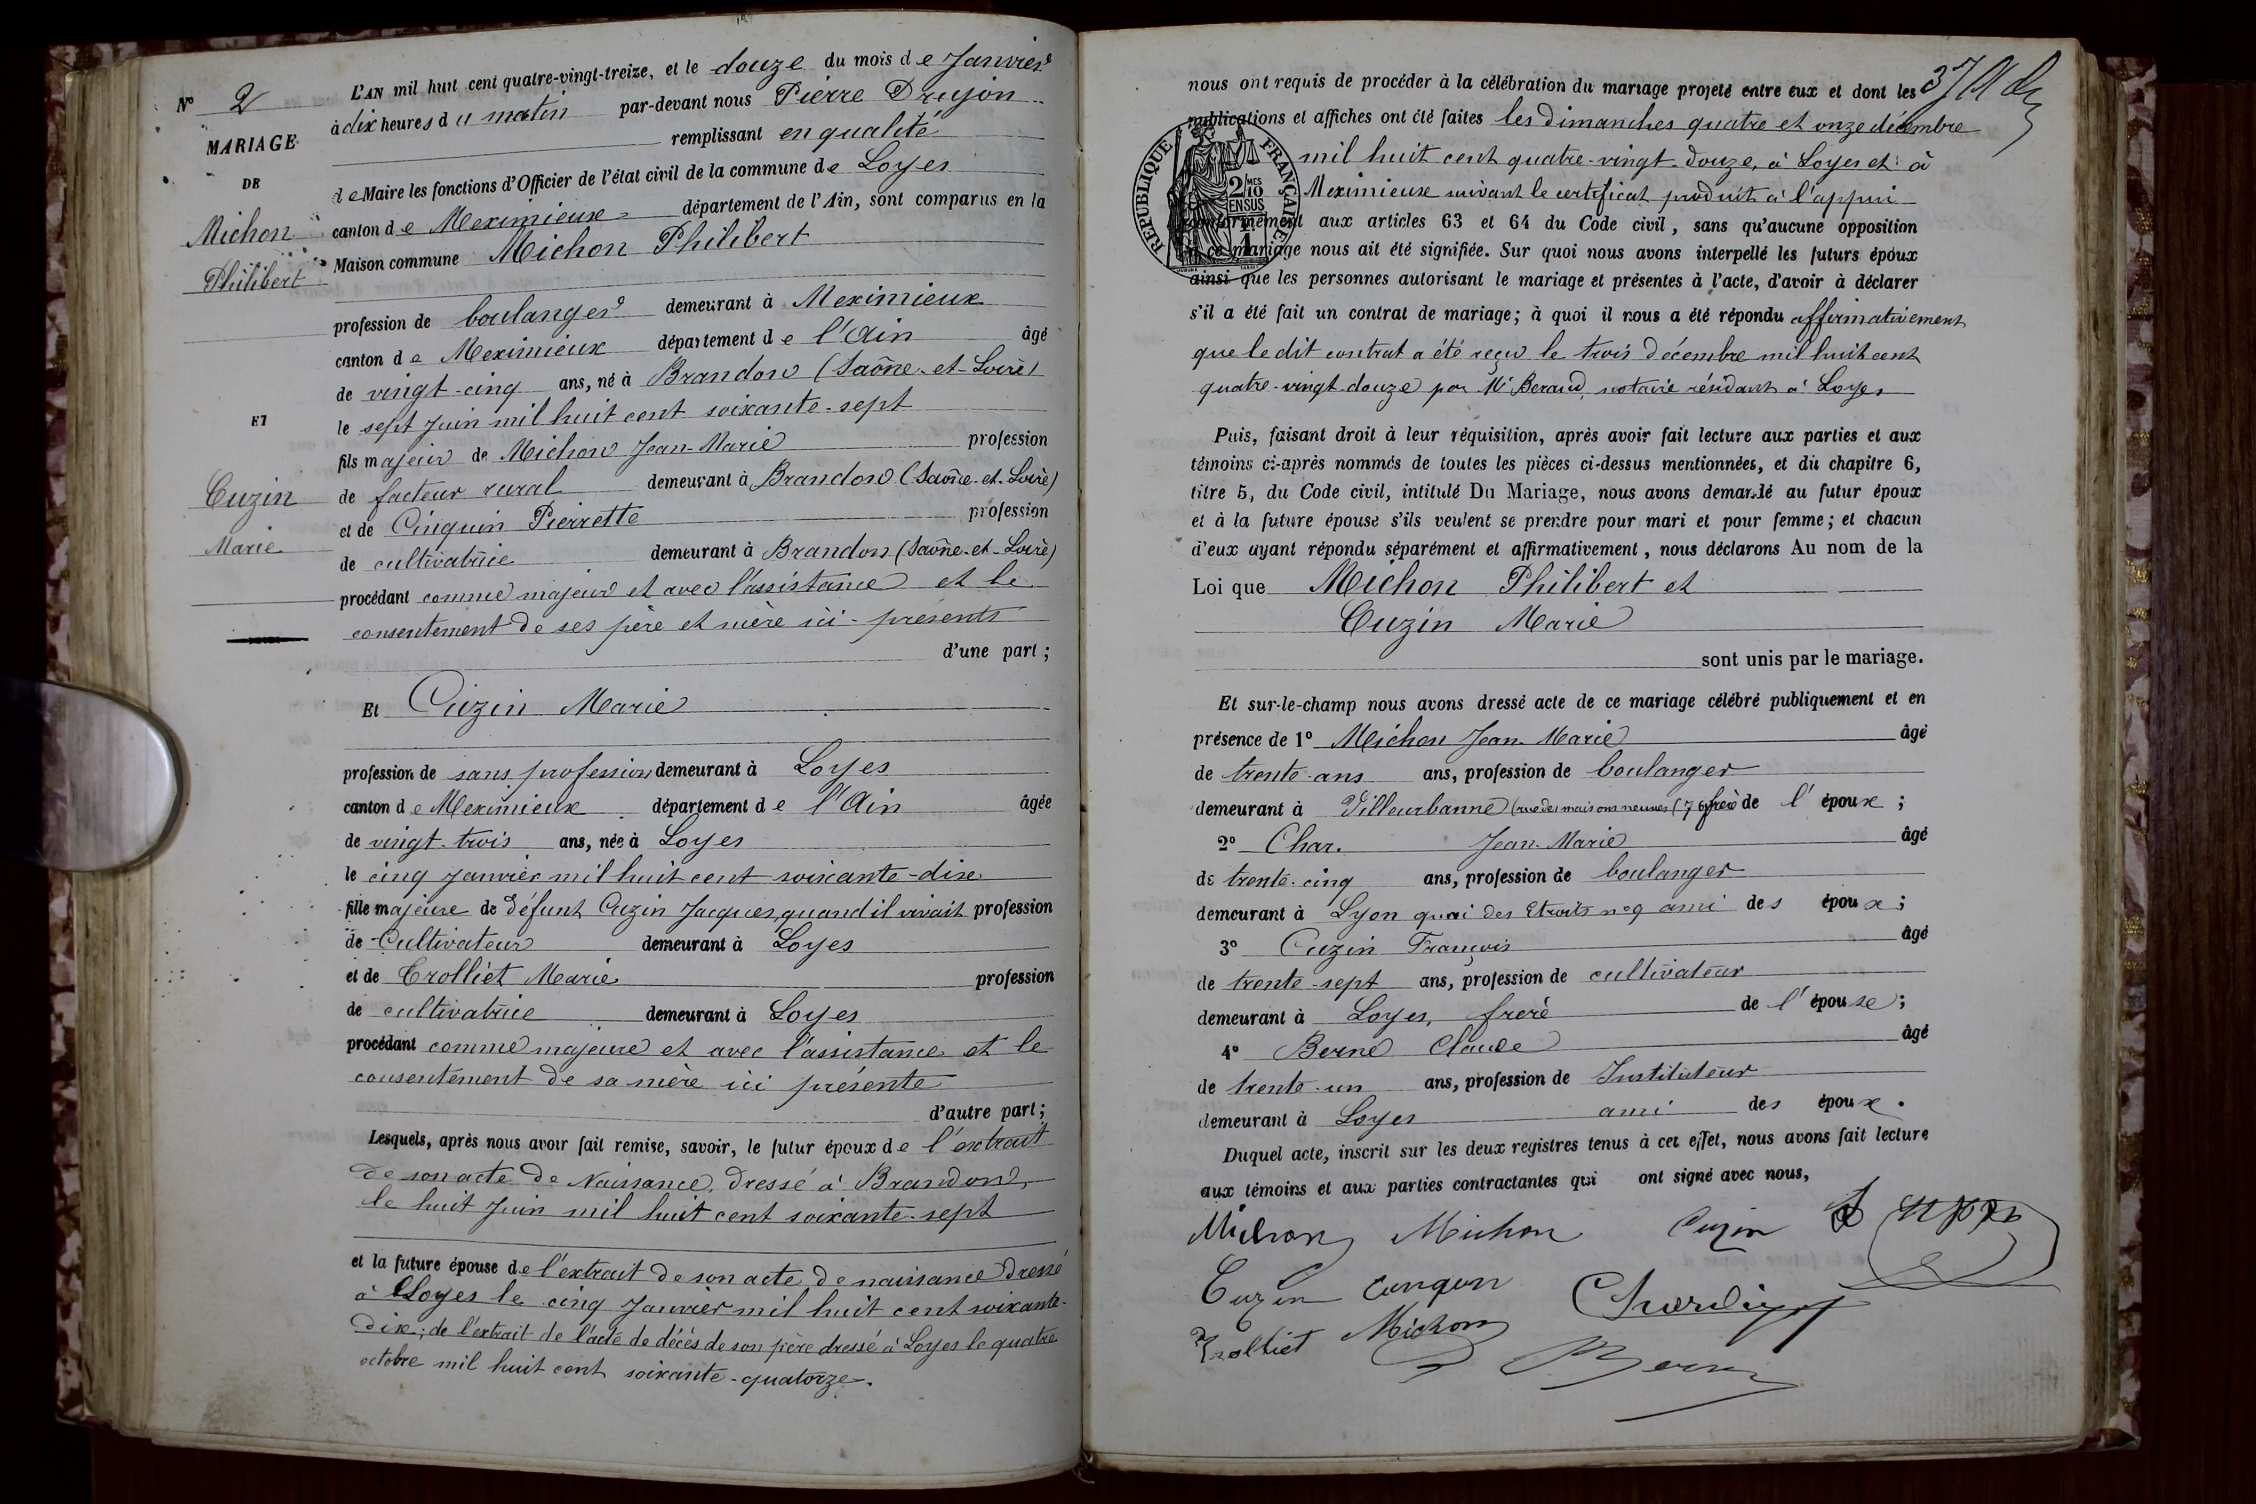 N° 2
MARIAGE
DE
Michon
Philibert
ET
Cuzin
Marie
L'AN mil huit cent quatre-vingt-treize, et le douze du mois de Janvier
à dix heures du matin par-devant nous Pierre Drujon
remplissant en qualité
de Maire les fonctions d'Officier de l'état civil de la commune de Loyes
canton de Meximieux département de l'Ain, sont comparus en la
Maison commune Michon Philibert
profession de boulanger demeurant à Meximieux
canton de Meximieux département de l'Ain âgé
de vingt-cinq ans, né à Brandon (Saône-et-Loire)
le sept Juin mil huit cent soixante-sept
fils majeur de Michon Jean-Marie profession
de facteur rural demeurant à Brandon (Saône-et-Loire)
et de Cinquin Pierrette profession
de cultivatrice demeurant à Brandon (Saône-et-Loire)
procédant comme majeur et avec l'assistance et le
consentement de ses père et mère ici-présents
d'une part;
Et Cuzin Marie
profession de sans profession demeurant à Loyes
canton de Meximieux département de l'Ain âgée
de vingt-trois ans, née à Loyes
le cinq Janvier mil huit cent soixante-dix
fille majeure de défunt Cuzin Jacques, quand il vivait profession
de Cultivateur demeurant à Loyes
et de Trolliet Marie profession
de cultivatrice demeurant à Loyes
procédant comme majeure et avec l'assistance et le
consentement de sa mère ici présente
d'autre part;
Lesquels, après nous avoir fait remise, savoir, le futur époux de l'extrait
de son acte de Naissance, dressé à Brandon,
le huit Juin mil huit cent soixante-sept
et la future épouse de l'extrait de son acte de naissance dressé
à Loyes le cinq Janvier mil huit cent soixante-
dix; de l'extrait de l'acte de décès de son père dressé à Loyes le quatre
octobre mil huit cent soixante-quatorze.
37
nous ont requis de procéder à la célébration du mariage projeté entre eux et dont les
publications et affiches ont été faites les dimanches quatre et onze décembre
mil huit cent quatre-vingt-douze, à Loyes et à
Meximieux suivant le certificat produit à l'appui
conformément aux articles 63 et 64 du Code civil, sans qu'aucune opposition
à ce mariage nous ait été signifiée. Sur quoi nous avons interpellé les futurs époux
ainsi que les personnes autorisant le mariage et présentes à l'acte, d'avoir à déclarer
s'il a été fait un contrat de mariage; à quoi il nous a été répondu affirmativement
que le dit contrat a été reçu le trois décembre mil huit cent
quatre-vingt douze par Me Beraud, notaire résidant à Loyes
RÉPUBLIQUE FRANÇAISE
2 MES 10
EN SUS
Puis, faisant droit à leur réquisition, après avoir fait lecture aux parties et aux
témoins ci-après nommés de toutes les pièces ci-dessus mentionnées, et du chapitre 6,
titre 5, du Code civil, intitulé Du Mariage, nous avons demandé au futur époux
et à la future épouse s'ils veulent se prendre pour mari et pour femme; et chacun
d'eux ayant répondu séparément et affirmativement, nous déclarons Au nom de la
Loi que Michon Philibert et
Cuzin Marie
sont unis par le mariage.
Et sur-le-champ nous avons dressé acte de ce mariage célébré publiquement et en
présence de 1° Michon Jean-Marie âgé
de trente-ans ans, profession de boulanger
demeurant à Villeurbanne (rue des maisons neuves, 76) frère de l'époux;
2° Char. Jean-Marie âgé
de trente-cinq ans, profession de boulanger
demeurant à Lyon quai des Etroits n° 9 ami des époux;
3° Cuzin François âgé
de trente-sept ans, profession de cultivateur
demeurant à Loyes, frère de l'épouse;
4° Berne Claude âgé
de trente-un ans, profession de Instituteur
demeurant à Loyes ami des époux.
Duquel acte, inscrit sur les deux registres tenus à cet effet, nous avons fait lecture
aux témoins et aux parties contractantes qui ont signé avec nous,
Michon Michon Cuzin
Cuzin
Trolliet Michon
Berne